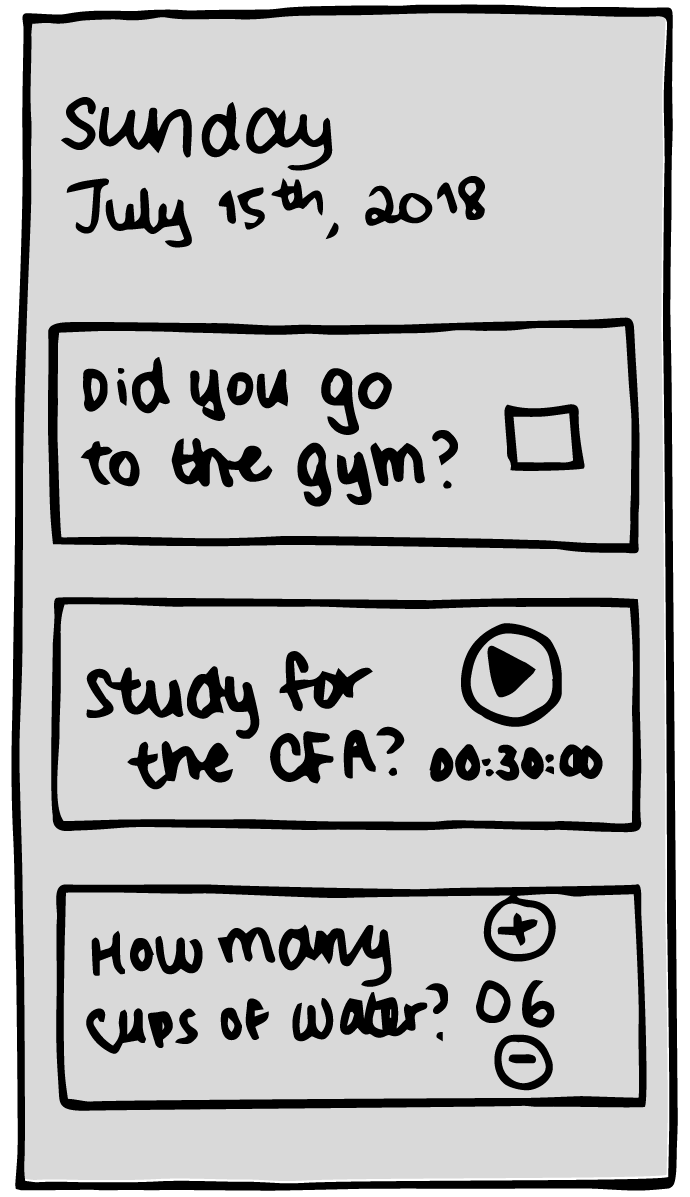 Sunday
July 15th, 2018
Did you go
to the gym?
Study for
the CFA?
00:30:00
How many
cups of water?
06